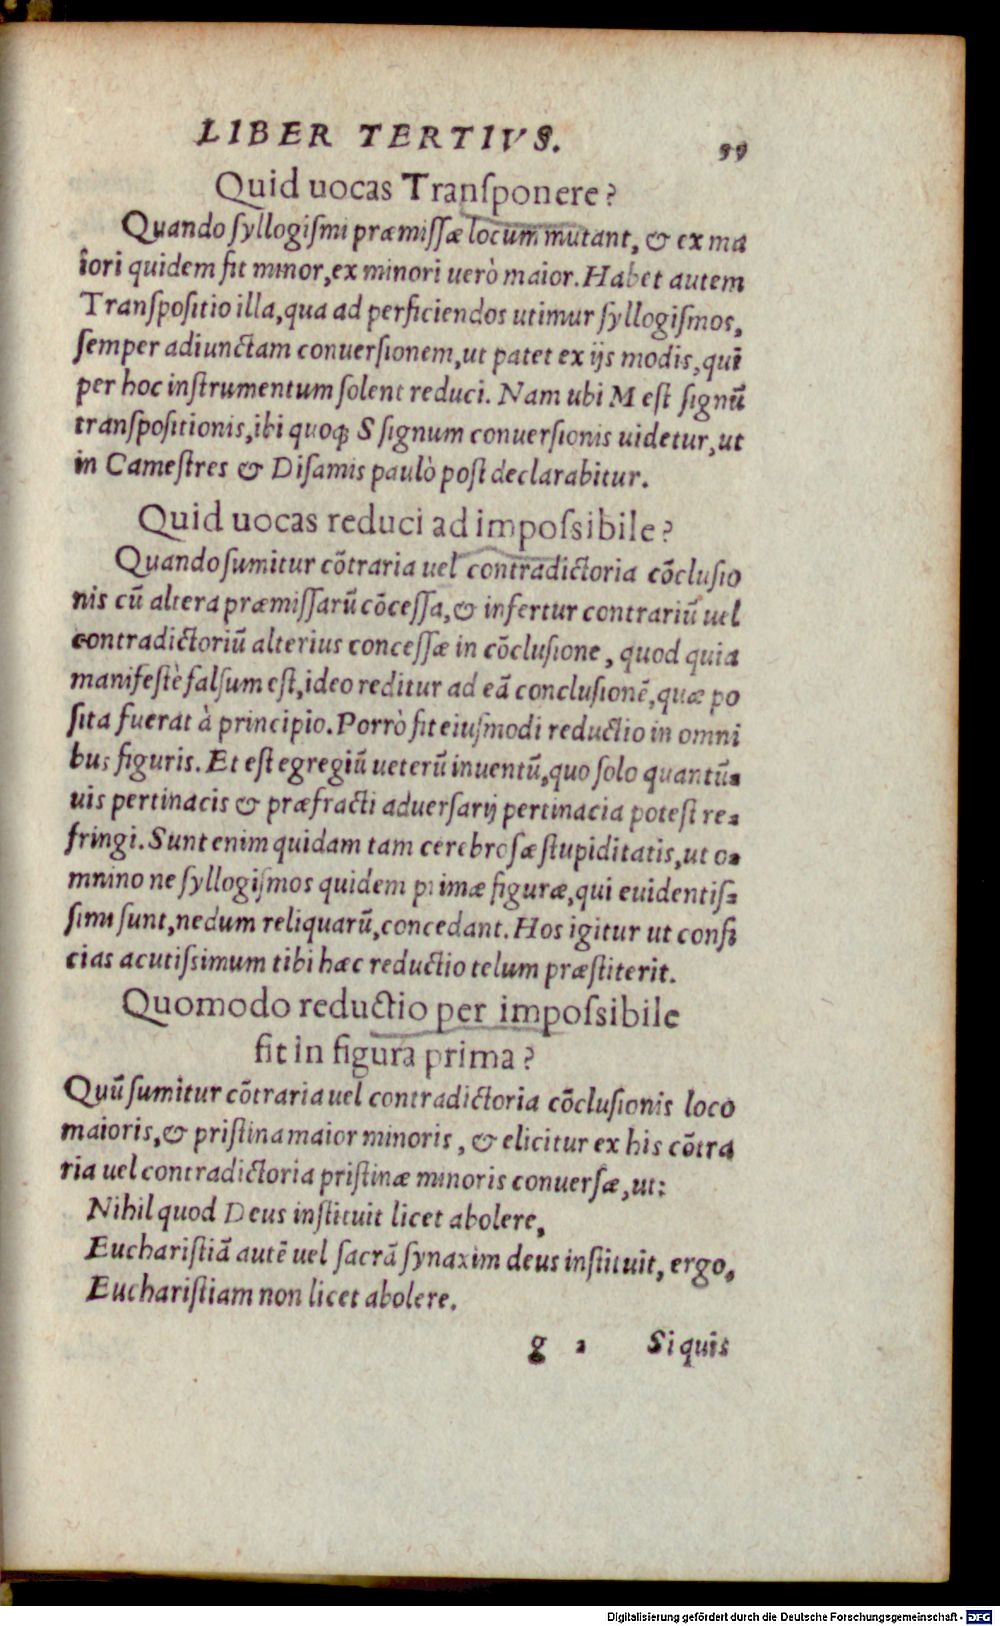 LIBER TERTIVS. 99
Quid uocas Transponere?
Quando syllogismi præmissæ locum mutant, & ex ma
iori quidem fit minor, ex minori uerò maior. Habet autem
Transpositio illa, qua ad perficiendos utimur syllogismos,
semper adiunctam conuersionem, ut patet ex ijs modis, qui
per hoc instrumentum solent reduci. Nam ubi M est signũ
transpositionis, ibi quoq; S signum conuersionis uidetur, ut
in Camestres & Disamis paulò post declarabitur.
Quid uocas reduci ad impossibile?
Quando sumitur cõtraria uel contradictoria cõclusio
nis cũ altera præmissarũ cõcessa, & infertur contrariũ uel
contradictoriũ alterius concessæ in cõclusione, quod quia
manifestè falsum est, ideo reditur ad eã conclusionẽ, quæ po
sita fuerat à principio. Porrò fit eiusmodi reductio in omni
bus figuris. Et est egregiũ ueterũ inuentũ, quo solo quantũ-
uis pertinacis & præfracti aduersarij pertinacia potest re-
fringi. Sunt enim quidam tam cerebrosæ stupiditatis, ut o-
mnino ne syllogismos quidem primæ figuræ, qui euidentis-
simi sunt, nedum reliquarũ, concedant. Hos igitur ut confi
cias acutissimum tibi hæc reductio telum præstiterit.
Quomodo reductio per impossibile
fit in figura prima?
Quũ sumitur cõtraria uel contradictoria cõclusionis loco
maioris, & pristina maior minoris, & elicitur ex his cõtra
ria uel contradictoria pristinæ minoris conuersæ, ut:
Nihil quod Deus instituit licet abolere,
Eucharistiã autẽ uel sacrã synaxim deus instituit, ergo,
Eucharistiam non licet abolere.
g 2 Si quis
Digitalisierung gefördert durch die Deutsche Forschungsgemeinschaft - DFG